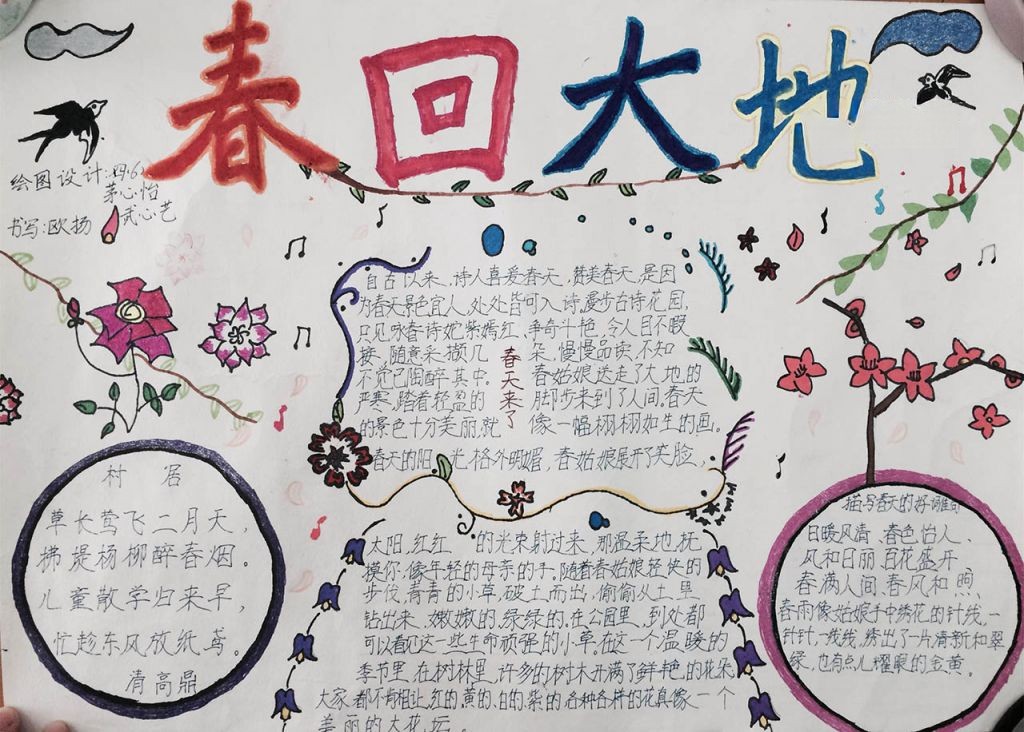 春回大地
绘图设计:四.6
茅心怡
书写:欧扬 武心艺
自古以来,诗人喜爱春天,赞美春天,是因
为春天景色宜人,处处皆可入诗,漫步古诗花园,
只见咏春诗姹紫嫣红,争奇斗艳,令人目不暇
接,随意采撷几朵,慢慢品读,不知
不觉已陶醉其中。春姑娘送走了大地的
严寒,踏着轻盈的脚步来到了人间。春天
的景色十分美丽,就像一幅栩栩如生的画。
春天来了
春天的阳光格外明媚,春姑娘展开了笑脸,
太阳,红红的光束射过来,那温柔地抚
摸你,像年轻的母亲的手。随着春姑娘轻快的
步伐,青青的小草,破土而出,偷偷从土里
钻出来,嫩嫩的,绿绿的。在公园里,到处都
可以看见这一些生命顽强的小草,在这一个温暖的
季节里,在树林里,许多的树木开满了鲜艳的花朵
大家都不肯相让,红的、黄的、白的、紫的,各种各样的花真像一个
美丽的大花坛。
村居
草长莺飞二月天,
拂堤杨柳醉春烟。
儿童散学归来早,
忙趁东风放纸鸢。
清高鼎
描写春天的好词佳句
日暖风清、春色怡人、
风和日丽、百花盛开、
春满人间、春风和煦、
春雨像姑娘手中绣花的针线,一
针针,一线线,绣出了一片清新和翠
绿,也有点儿耀眼的金黄。